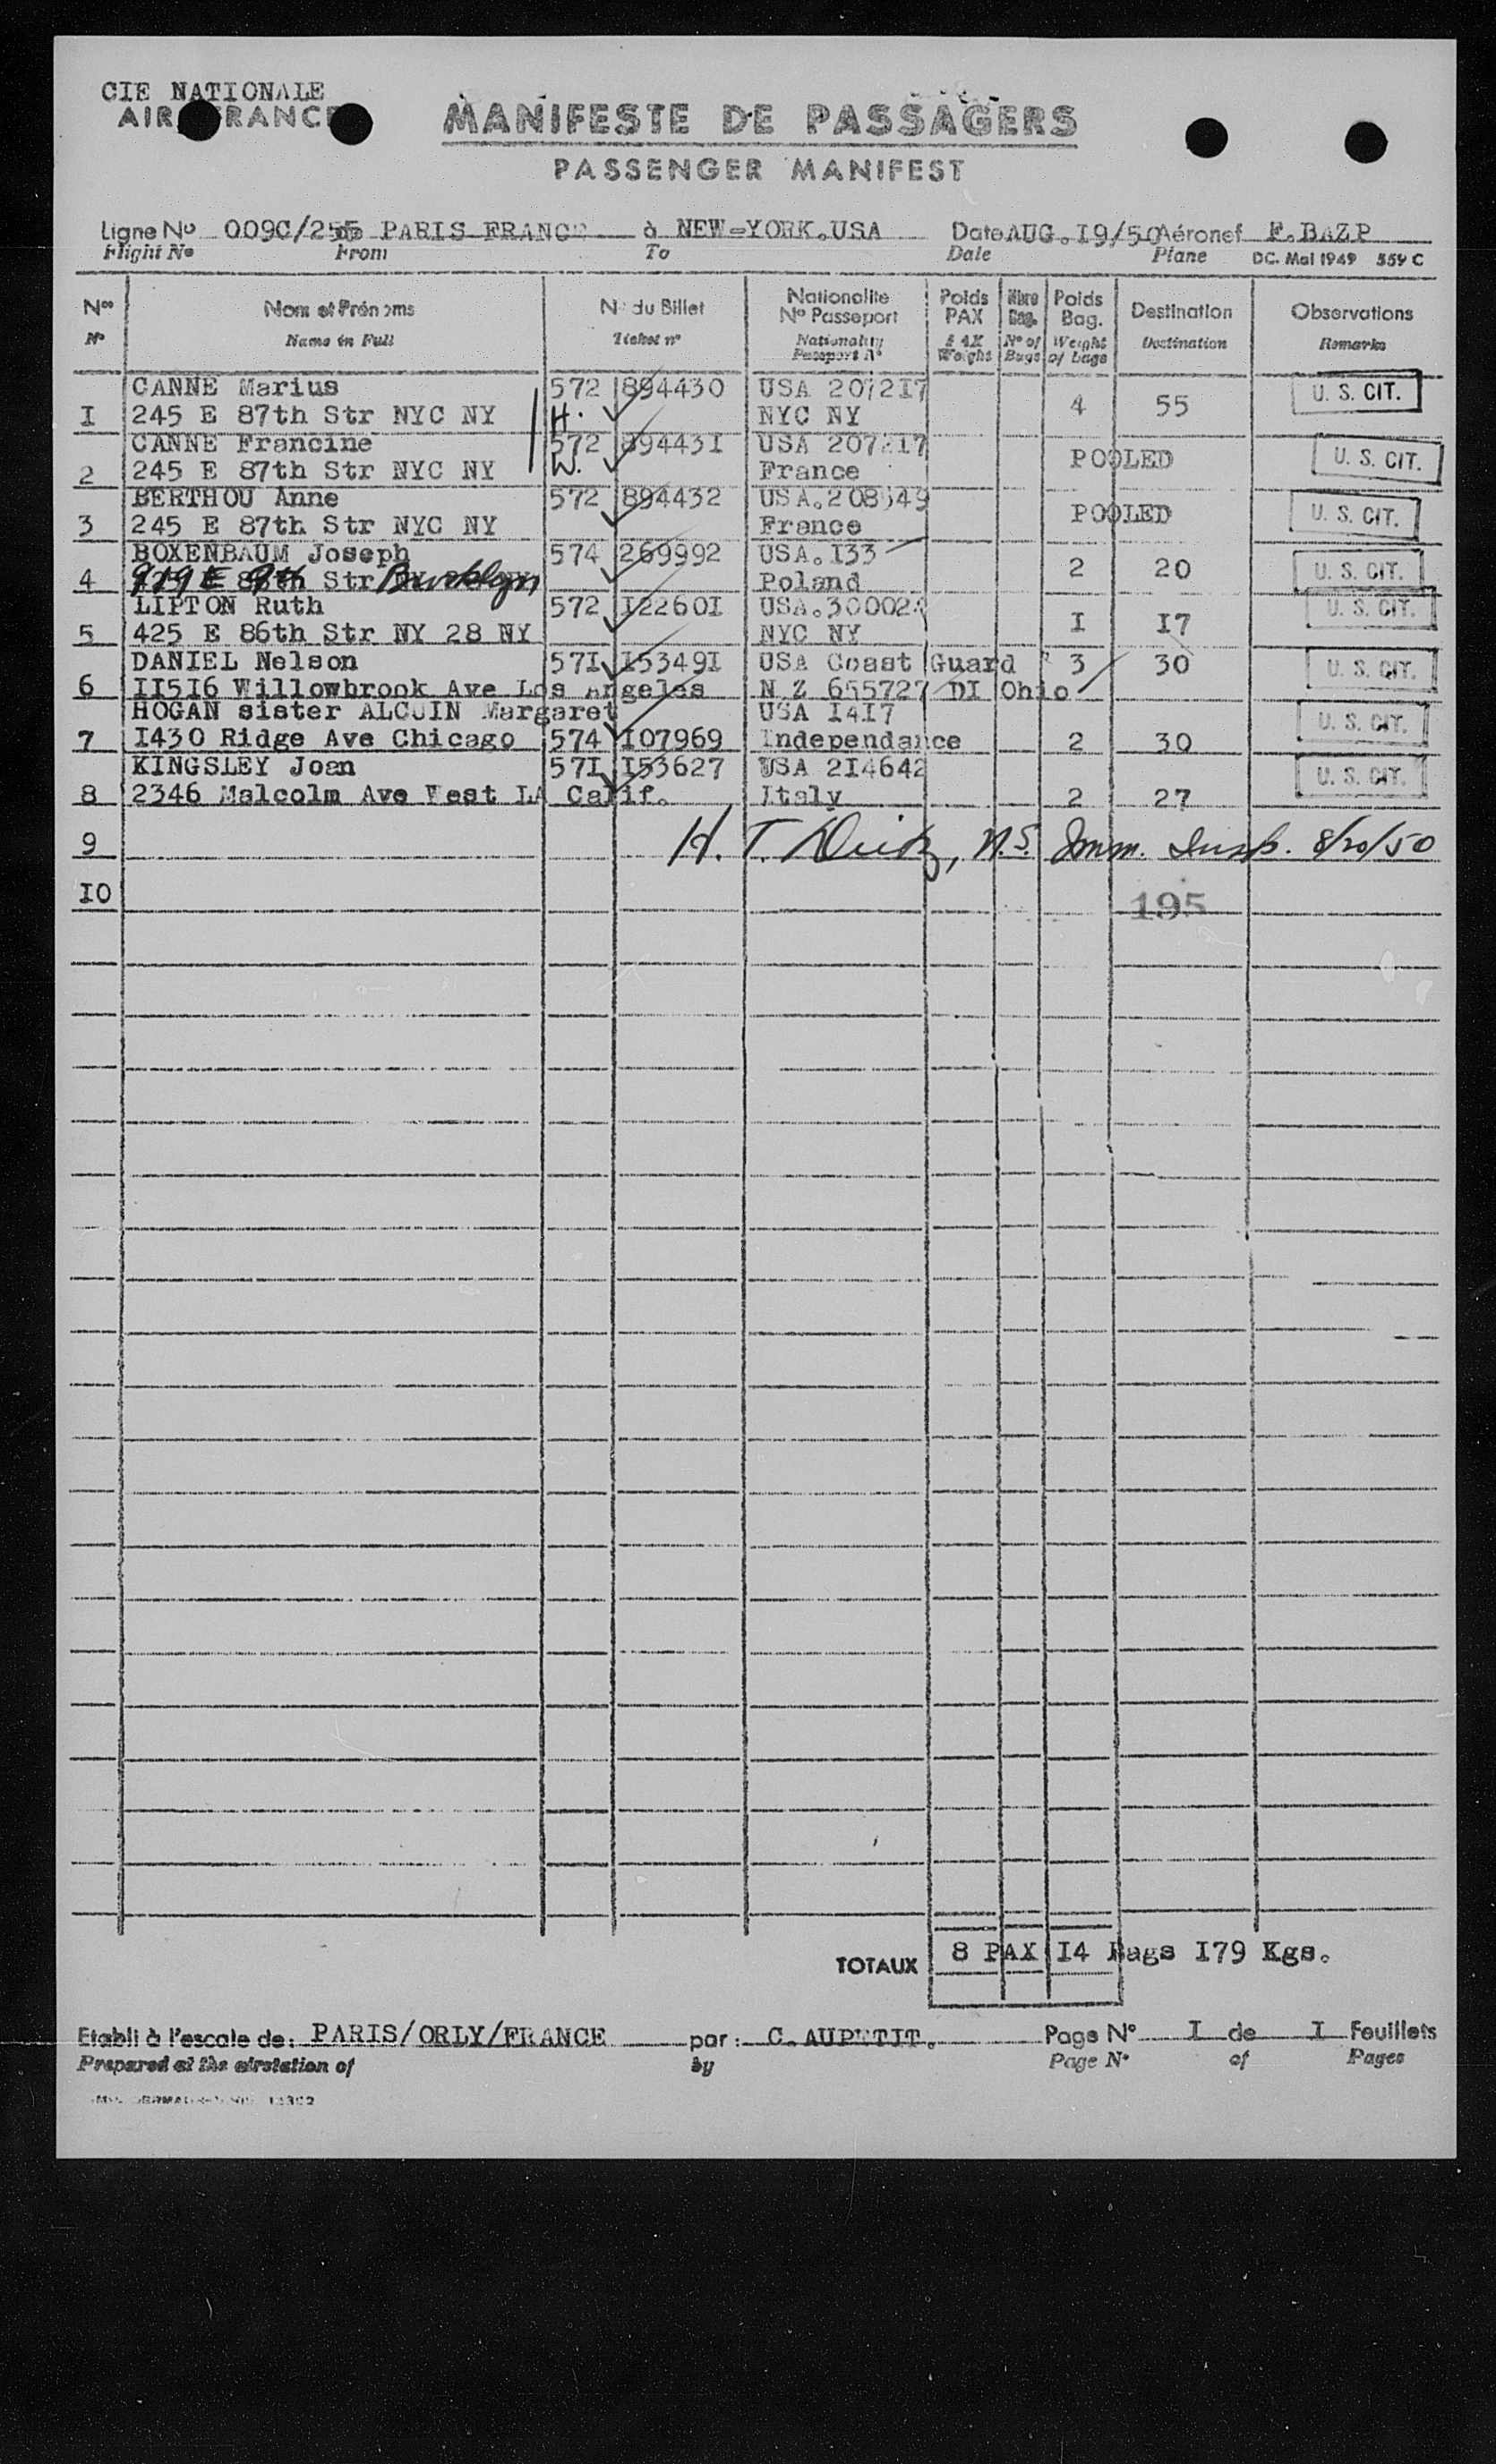 CIE NATIONALE
AIR FRANCE
MANIFESTE DE PASSAGERS
PASSENGER MANIFEST
Ligne No 009C/255 de PARIS FRANCE à NEW=YORK.USA Date AUG.I9/50 Aéronef F.BAZP
Flight No From To Date Plane DC. Mai 1949 559 C
Nos Nom et Prénoms No du Billet Nationalite No Passeport Poids PAX Nbre Bag. Poids Bag. Destination Observations
No Name in Full Ticket no Nationality Passport No PAX Weight No of Bags Weight of bags Destination Remarks
CANNE Marius 572 894430 USA 207217 U. S. CIT.
I 245 E 87th Str NYC NY H. NYC NY 4 55
CANNE Francine 572 894431 USA 207217 U. S. CIT.
2 245 E 87th Str NYC NY W. France POOLED
BERTHOU Anne 572 894432 USA. U. S. CIT.
3 245 E 87th Str NYC NY France POOLED
BOXENBAUM Joseph 574 269992 USA.I33 U. S. CIT.
4 Str Brooklyn Poland 2 20
LIPTON Ruth 572 I2260I USA. U. S. CIT.
5 425 E 86th Str NY 28 NY NYC NY I I7
DANIEL Nelson 57I I5349I USA Coast Guard 3 30 U. S. CIT.
6 II5I6 Willowbrook Ave Los Angeles N Z 655727 DI Ohio
HOGAN sister ALCUIN Margaret USA I4I7 U. S. CIT.
7 I430 Ridge Ave Chicago 574 I07969 Independance 2 30
KINGSLEY Joan 57I I53627 USA 2I4642 U. S. CIT.
8 2346 Malcolm Ave West LA Calif. Italy 2 27
9 H. T. U.S. Imm. Insp. 8/20/50
IO 195
TOTAUX 8 PAX I4 Bags I79 Kgs.
Etabli à l'escale de: PARIS/ORLY/FRANCE par: C.AUPETIT. Page No I de I Feuillets
Prepared at the airstation of by Page No of Pages